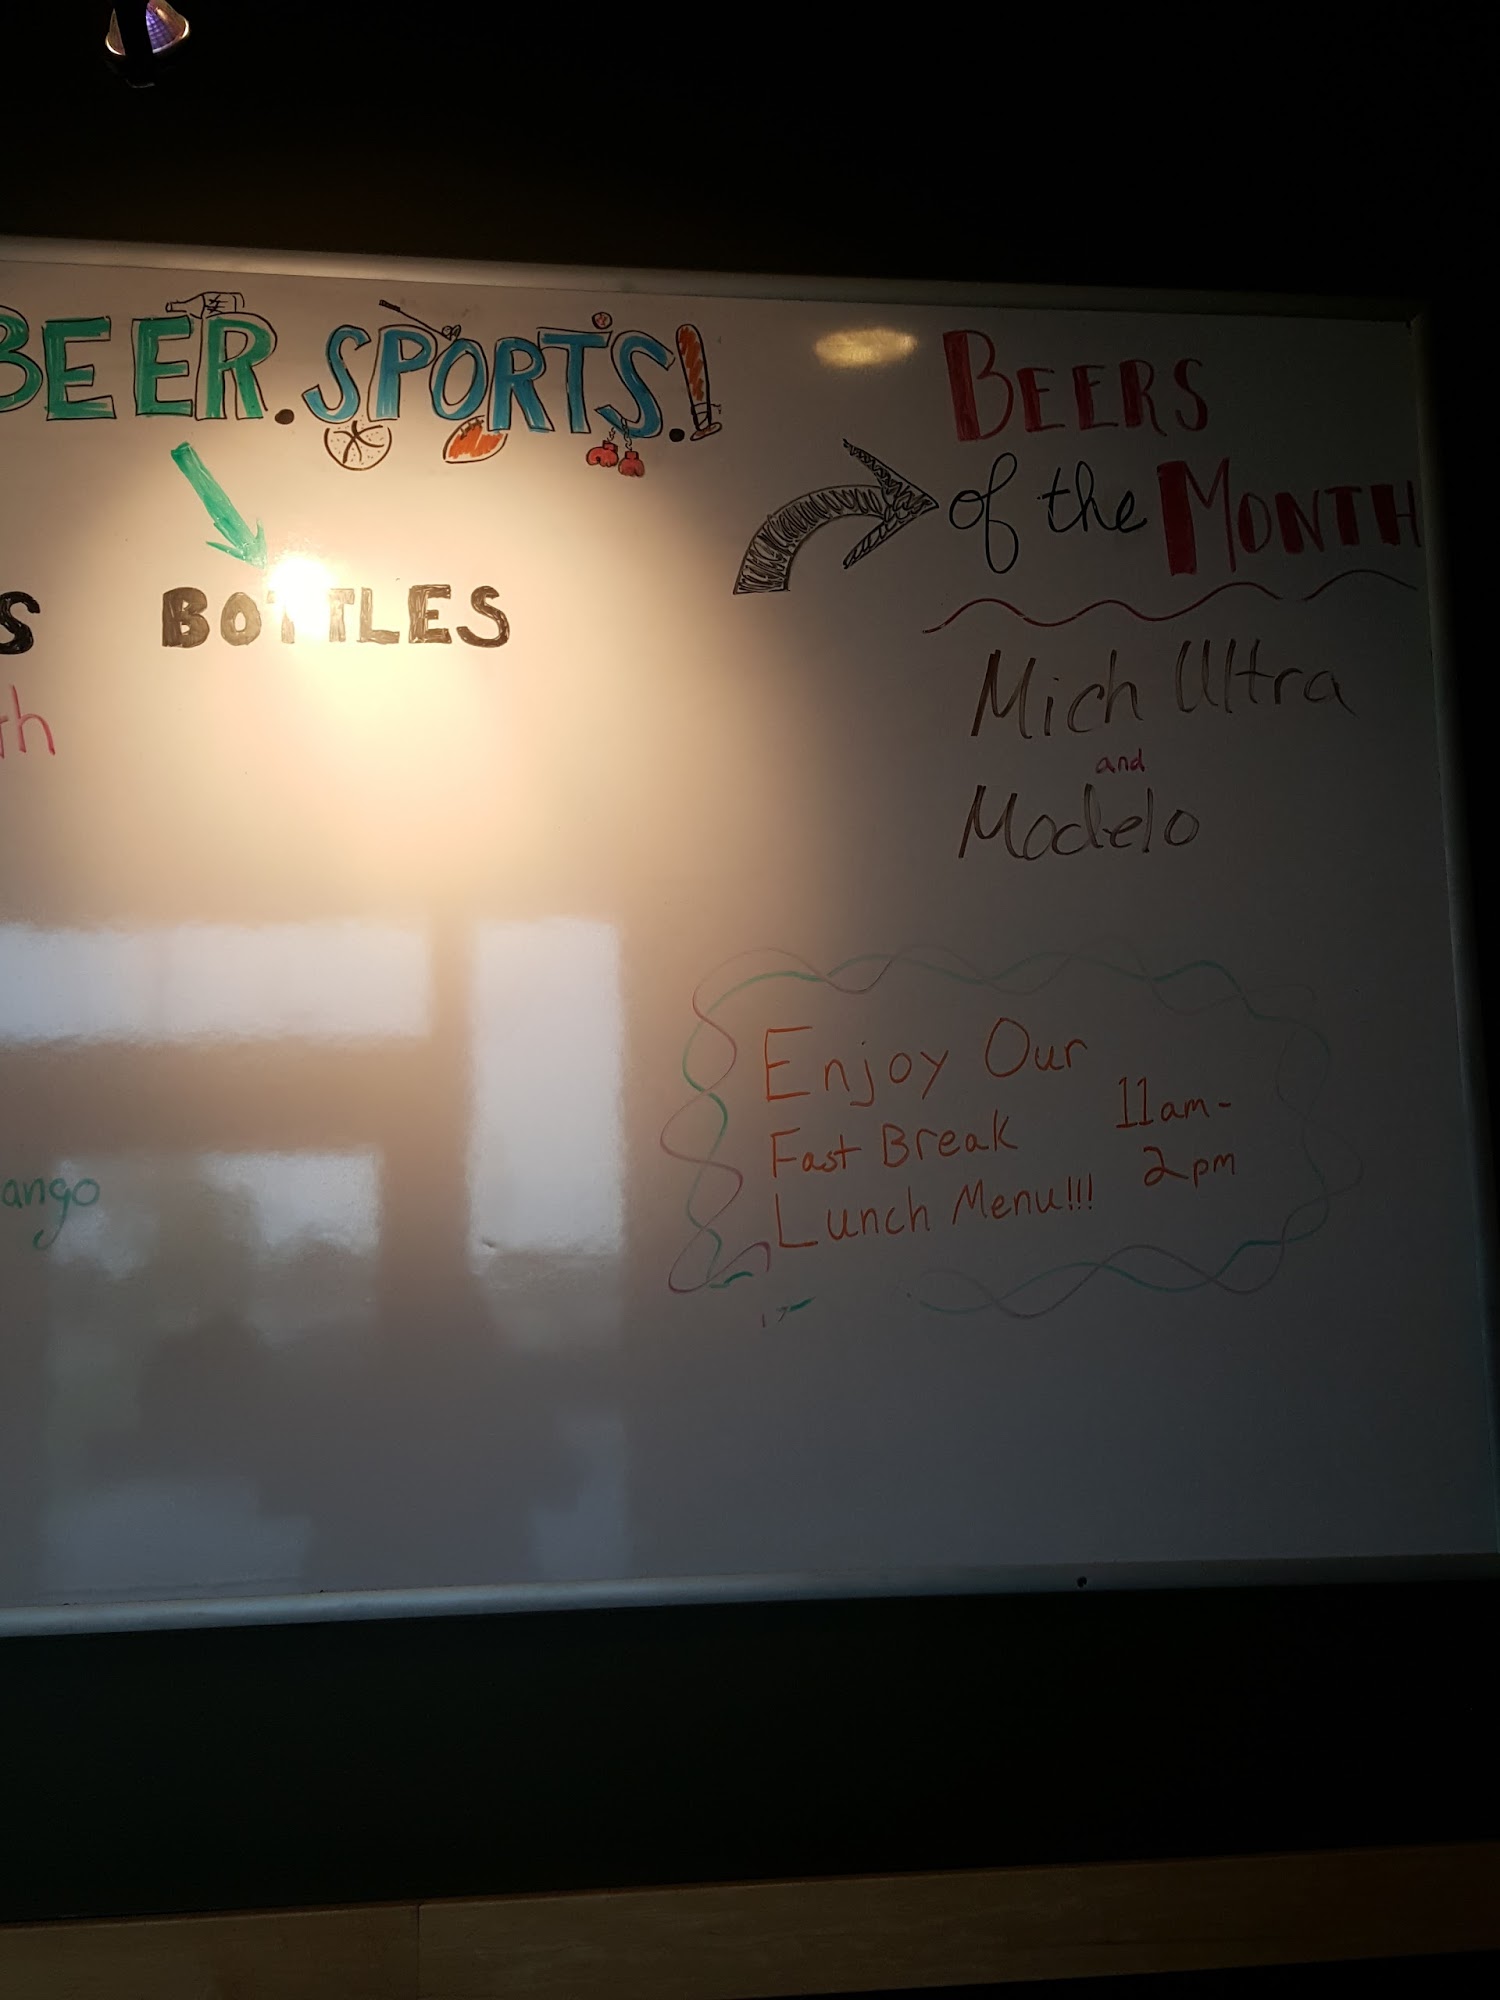 BEER. SPORTS.!
BOTTLES
BEERS
of the MONTH
Mich Ultra
and
Modelo
Enjoy Our
Fast Break
Lunch Menu!!!
11am-
2pm